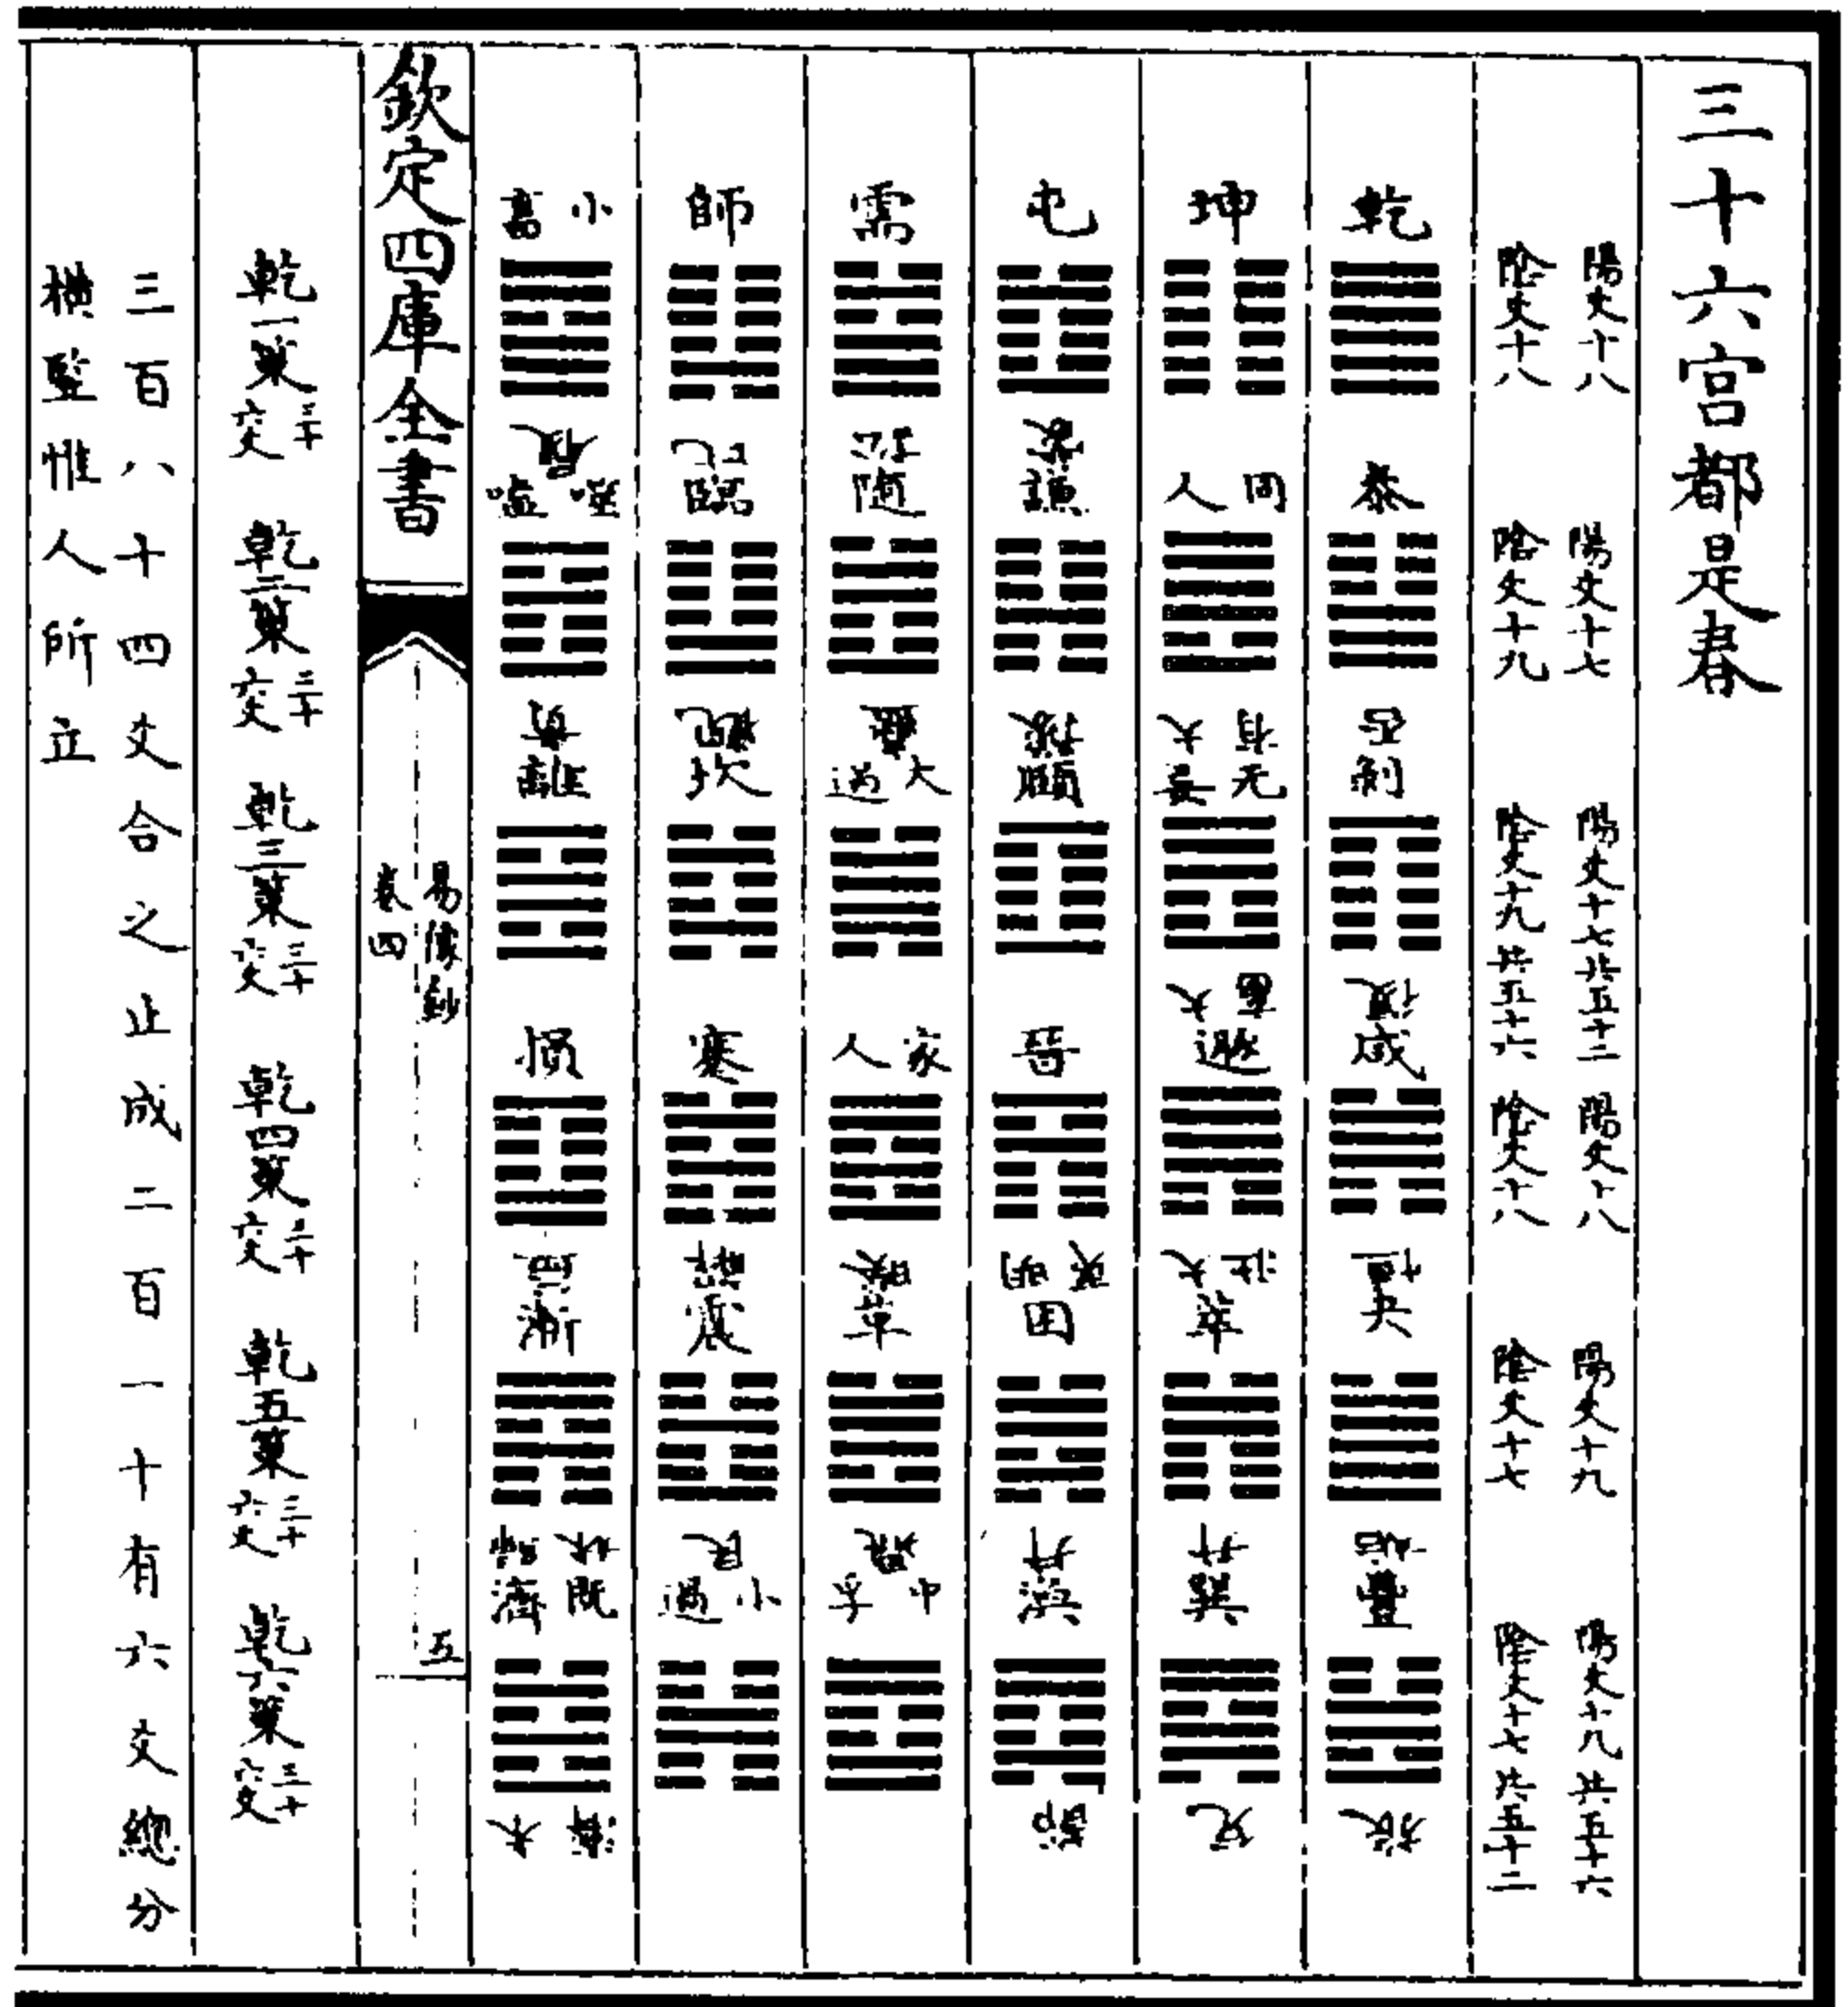 三十六宫都是春
陽爻十八 陽爻十七 陽爻十七共五十二 陽爻十八 陽爻十九 陽爻十九共五十六
陰爻十八 陰爻十九 陰爻十九共五十六 陰爻十八 陰爻十七 陰爻十七共五十二
乾 泰 否 剝 復 咸 恒 夬 姤 豐 旅
坤 同人 大有 无妄 大畜 遯 大壯 萃 升 巽 兌
屯 蒙 謙 豫 頤 晉 明夷 困 井 渙 節
需 訟 隨 蠱 大過 家人 睽 革 鼎 中孚
師 比 臨 觀 坎 蹇 解 震 艮 小過
小畜 履 噬嗑 賁 離 損 益 漸 歸妹 既濟 未濟
欽定四庫全書
易像鈔
卷四
五
乾一策三十六爻 乾二策三十六爻 乾三策三十六爻 乾四策三十六爻 乾五策三十六爻 乾六策三十六爻
三百八十四爻合之止成二百一十有六爻總分
橫豎惟人所立